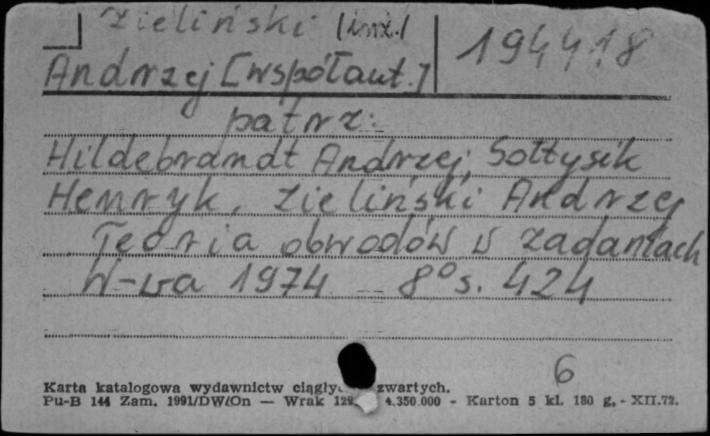 Zieliński (inż.) 194418
Andrzej [współaut.]
patrz:
Hildebrandt Andrzej, Sołtysik
Henryk, Zieliński Andrzej
Teoria obwodów w zadaniach
W-wa 1974 8° s. 424
6
Karta katalogowa wydawnictw zwartych.
Pu-B 144 Zam. 1991/DW/On — Wrak 4.350.000 - Karton 5 kl. 180 g. - XII.72.